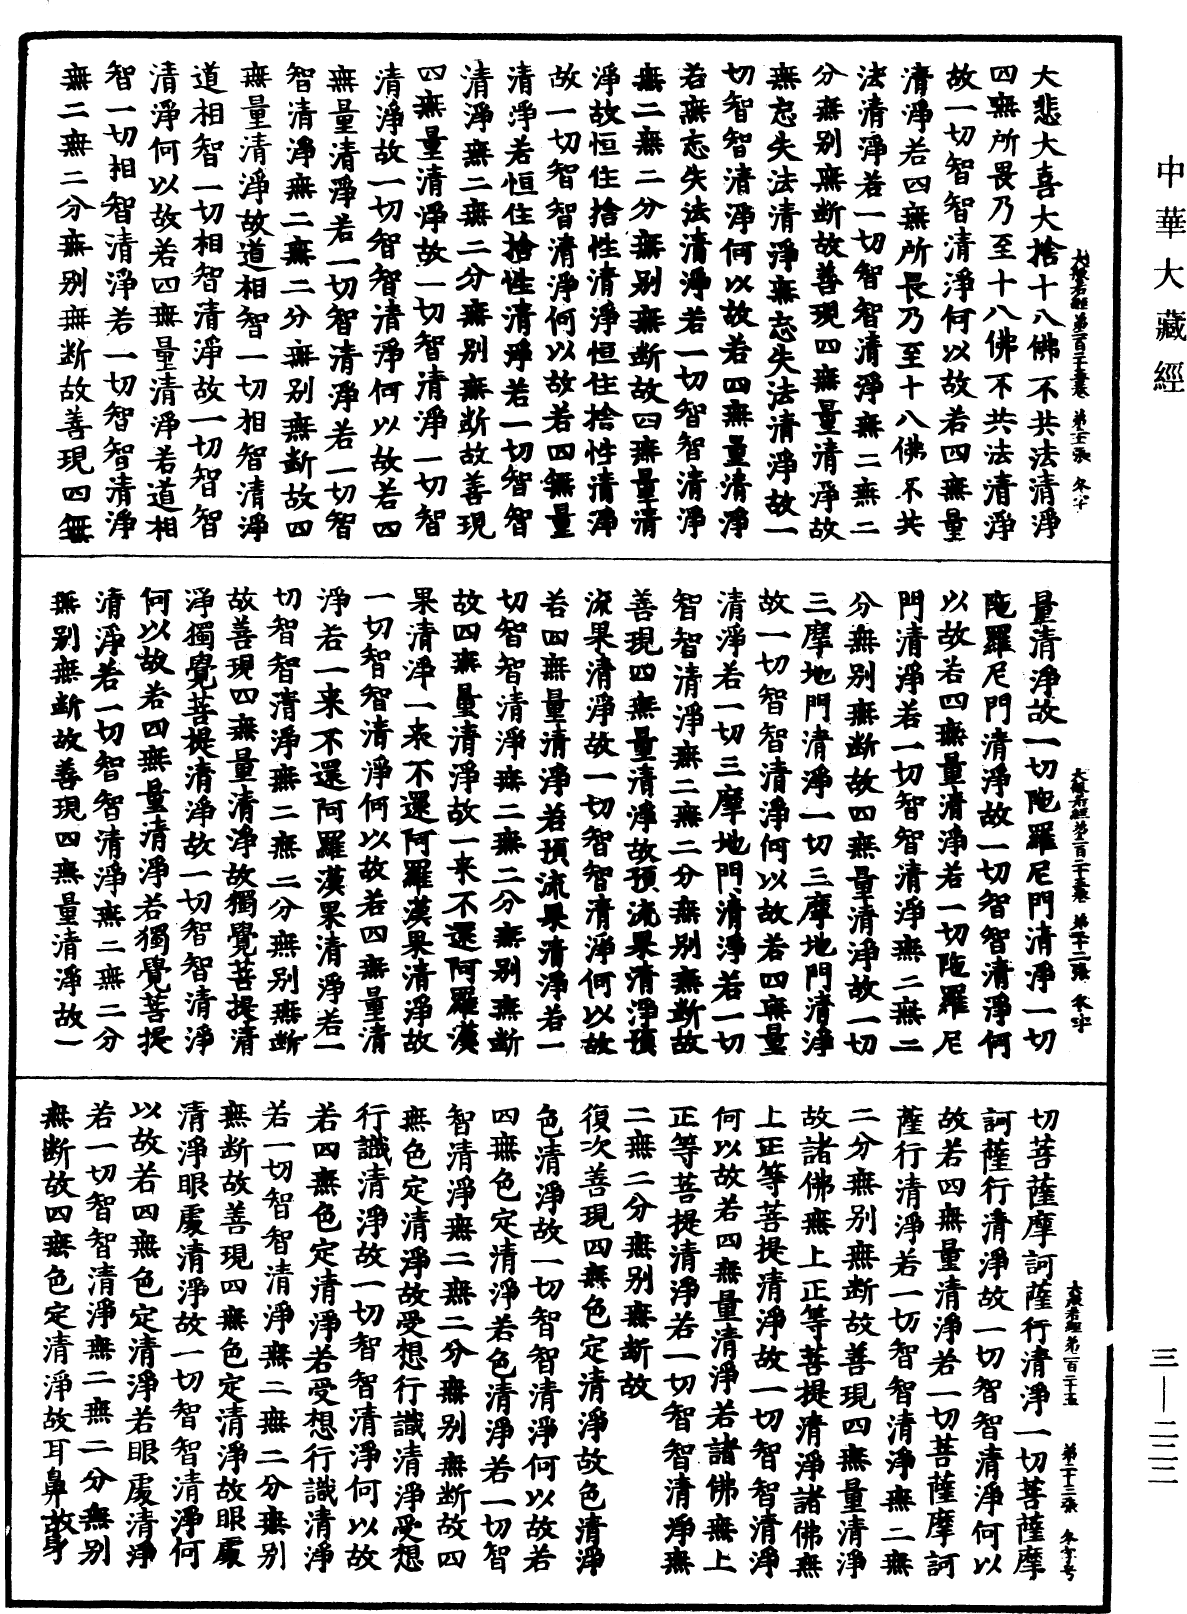 中華大藏經
大悲大喜大捨十八佛不共法清淨
四無所畏乃至十八佛不共法清淨
故一切智智清淨何以故若四無量
清淨若四無所畏乃至十八佛不共
法清淨若一切智智清淨無二無二
分無別無斷故善現四無量清淨故
無忘失法清淨無忘失法清淨故一
切智智清淨何以故若四無量清淨
若無忘失法清淨若一切智智清淨
無二無二分無別無斷故四無量清
淨故恒住捨性清淨恒住捨性清淨
故一切智智清淨何以故若四無量
清淨若恒住捨性清淨若一切智智
清淨無二無二分無別無斷故善現
四無量清淨故一切智清淨一切智
清淨故一切智智清淨何以故若四
無量清淨若一切智清淨若一切智
智清淨無二無二分無別無斷故四
無量清淨故道相智一切相智清淨
道相智一切相智清淨故一切智智
清淨何以故若四無量清淨若道相
智一切相智清淨若一切智智清淨
無二無二分無別無斷故善現四無
量清淨故一切陁羅尼門清淨一切
陁羅尼門清淨故一切智智清淨何
以故若四無量清淨若一切陁羅尼
門清淨若一切智智清淨無二無二
分無別無斷故四無量清淨故一切
三摩地門清淨一切三摩地門清淨
故一切智智清淨何以故若四無量
清淨若一切三摩地門清淨若一切
智智清淨無二無二分無別無斷故
善現四無量清淨故預流果清淨預
流果清淨故一切智智清淨何以故
若四無量清淨若預流果清淨若一
切智智清淨無二無二分無別無斷
故四無量清淨故一来不還阿羅漢
果清淨一来不還阿羅漢果清淨故
一切智智清淨何以故若四無量清
淨若一来不還阿羅漢果清淨若一
切智智清淨無二無二分無別無斷
故善現四無量清淨故獨覺菩提清
淨獨覺菩提清淨故一切智智清淨
何以故若四無量清淨若獨覺菩提
清淨若一切智智清淨無二無二分
無別無斷故善現四無量清淨故一
切菩薩摩訶薩行清淨一切菩薩摩
訶薩行清淨故一切智智清淨何以
故若四無量清淨若一切菩薩摩訶
薩行清淨若一切智智清淨無二無
二分無別無斷故善現四無量清淨
故諸佛無上正等菩提清淨諸佛無
上正等菩提清淨故一切智智清淨
何以故若四無量清淨若諸佛無上
正等菩提清淨若一切智智清淨無
二無二分無別無斷故
復次善現四無色定清淨故色清淨
色清淨故一切智智清淨何以故若
四無色定清淨若色清淨若一切智
智清淨無二無二分無別無斷故四
無色定清淨故受想行識清淨受想
行識清淨故一切智智清淨何以故
若四無色定清淨若受想行識清淨
若一切智智清淨無二無二分無別
無斷故善現四無色定清淨故眼處
清淨眼處清淨故一切智智清淨何
以故若四無色定清淨若眼處清淨
若一切智智清淨無二無二分無別
無斷故四無色定清淨故耳鼻舌身
三—二二二